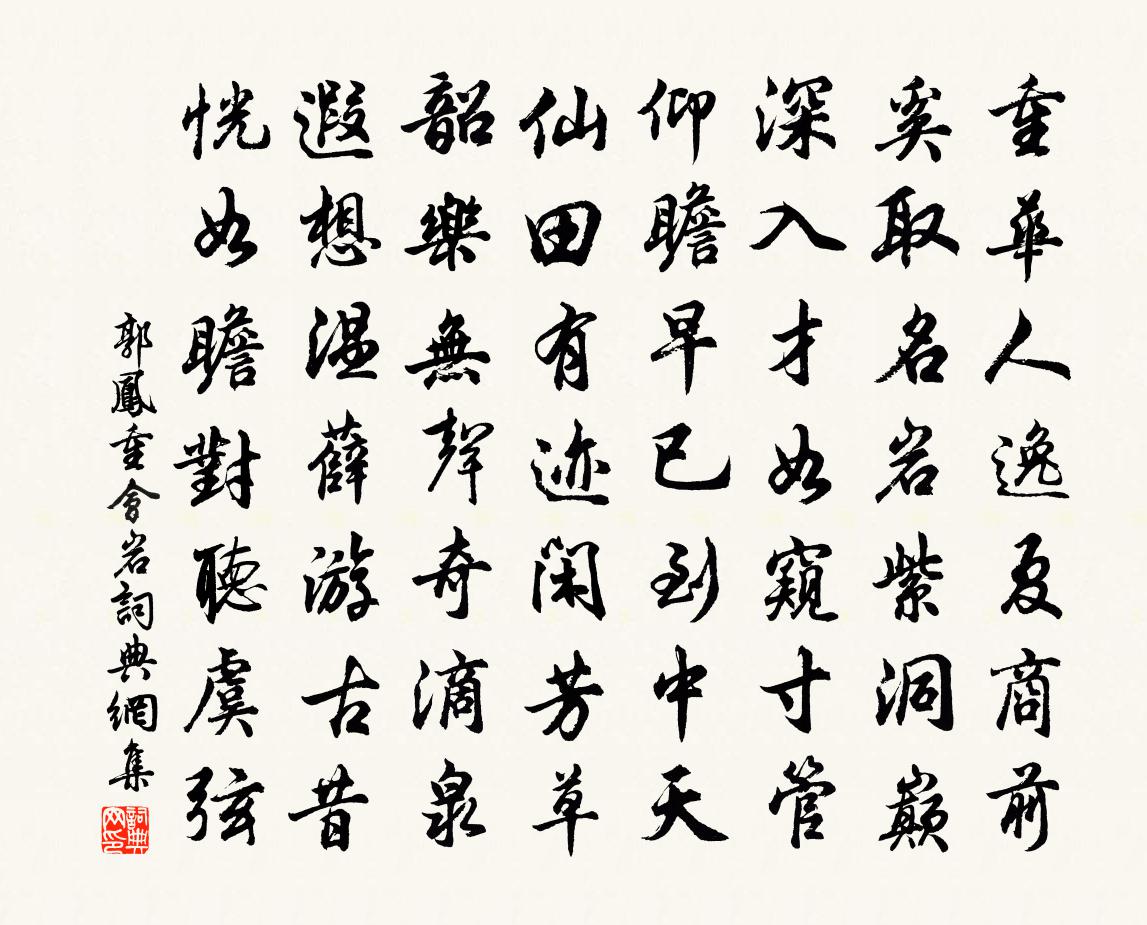 重華人逸夏商前
奚取名岩紫洞巔
深入才如窺寸管
仰瞻早已到中天
仙田有迹闲芳草
韶樂無聲奇滴泉
遐想温薛游古昔
恍如瞻對聽虞弦
郭鳳重會岩詞典網集
詞典网印